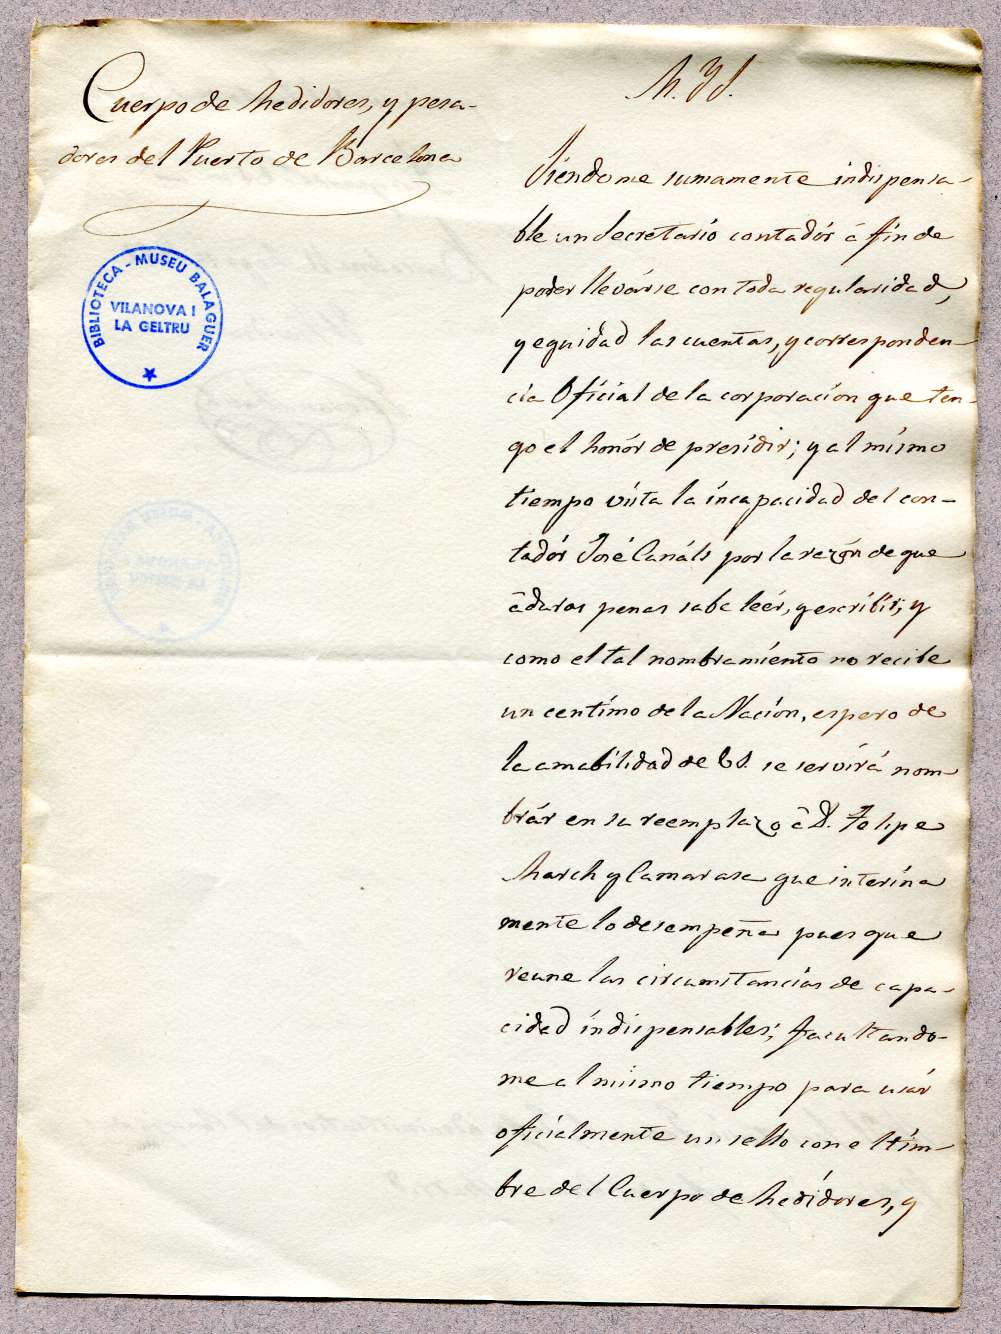 Cuerpo de Medidores, y pesa-
dores del Puerto de Barcelona
BIBLIOTECA - MUSEU BALAGUER
VILANOVA I
LA GELTRU
M. Y S.
Siendome sumamente indispensa-
ble un Secretario contadór â fin de
poder llevárse con toda regularidad,
y equidad las cuentas, y corresponden-
cia Oficial de la corporacion que ten-
go el honór de presidir; y al mismo
tiempo vista la incapacidad del con-
tadór José Canáls por la razón de que
â duras penas sabe leér, y escribír; y
como el tal nombramiento no recibe
un centimo de la Nacion, espero de
la amabilidad de V.S. se servirá nom-
brár en su reemplazo â D. Felipe
March y Camarasa que interina
mente lo desempeña pues que
reune las circumstancias de capa-
cidad indispensables; facultando-
me al mismo tiempo para usár
oficialmente un sello con el tim-
bre del Cuerpo de Medidores, y